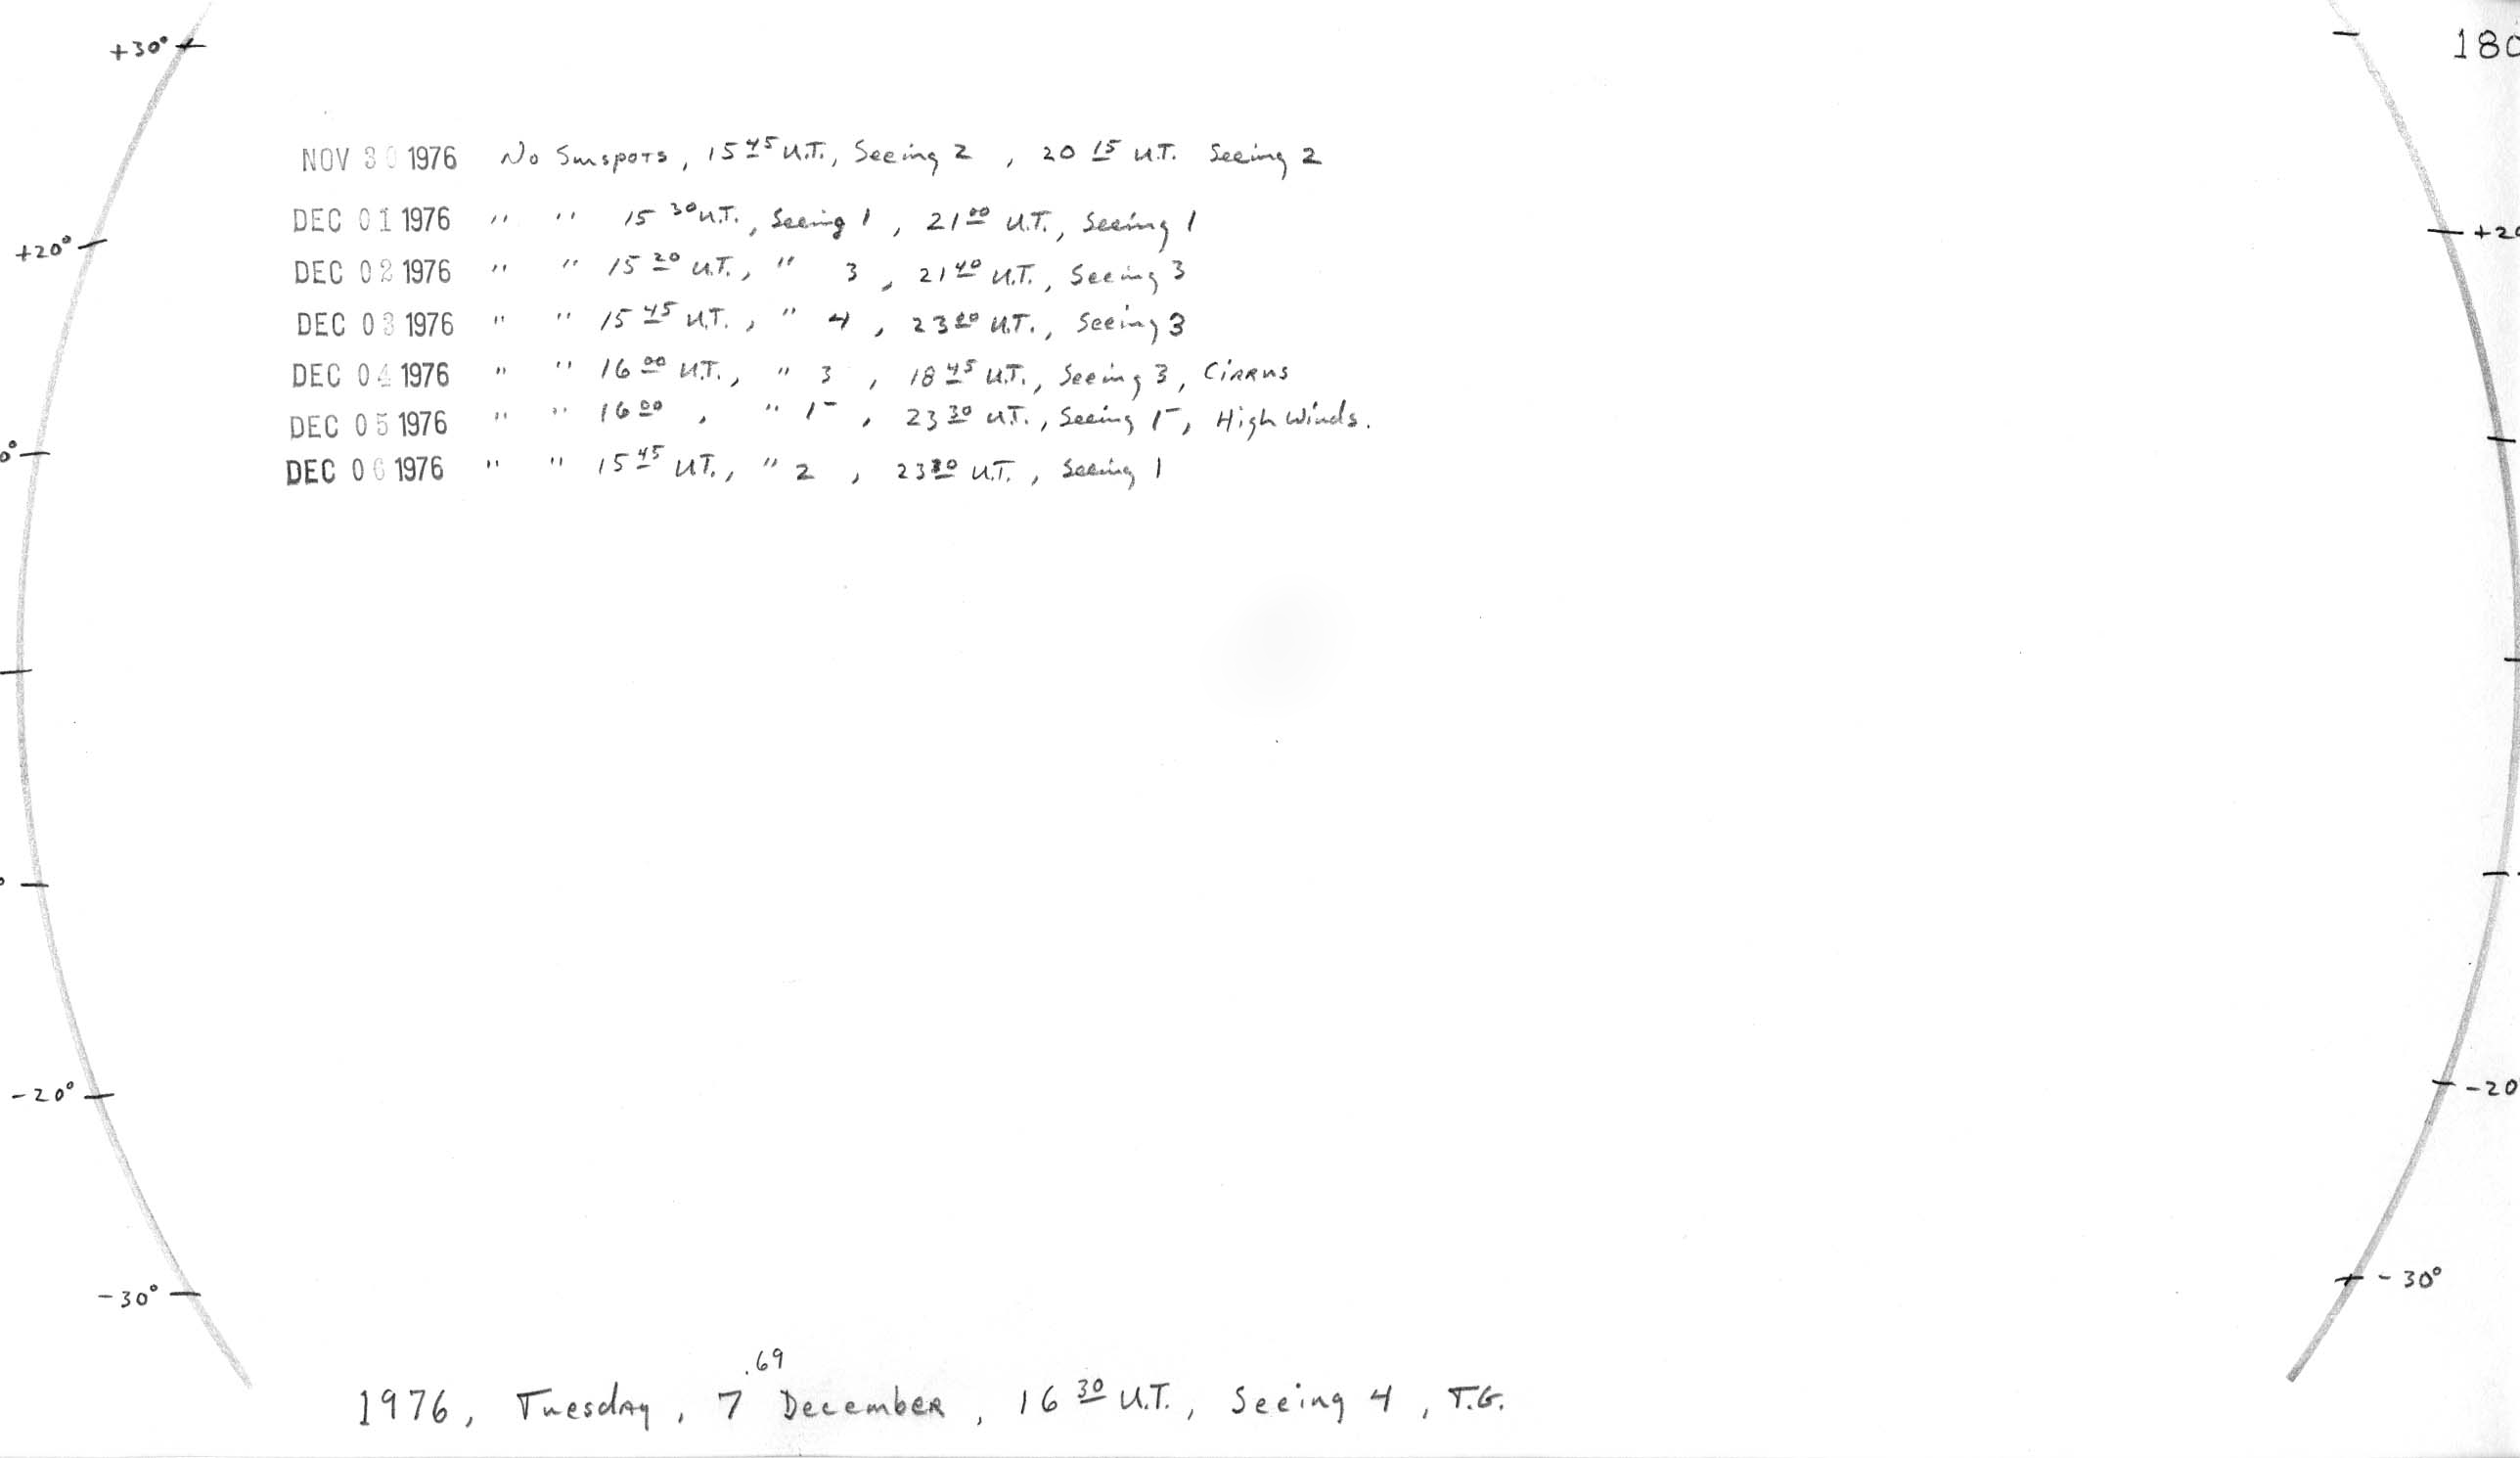 +30°
180
NOV 30 1976 No Sunspots, 15 45 U.T., Seeing 2 , 20 15 U.T. Seeing 2
DEC 01 1976 " " 15 30 U.T., Seeing 1 , 21 00 U.T., Seeing 1
+20° +20
DEC 02 1976 " " 15 20 U.T., " 3 , 21 40 U.T., Seeing 3
DEC 03 1976 " " 15 45 U.T., " 4 , 23 U.T., Seeing 3
DEC 04 1976 " " 16 00 U.T., " 3 , 18 45 U.T., Seeing 3, Cirrus
DEC 05 1976 " " 16 00 , " 1- , 23 30 U.T., Seeing 1-, High Winds.
0°
DEC 06 1976 " " 15 45 U.T., " 2 , 23 U.T., Seeing 1
-20° -20
-30° -30°
.69
1976, Tuesday, 7 December, 16 30 U.T., Seeing 4, T.G.